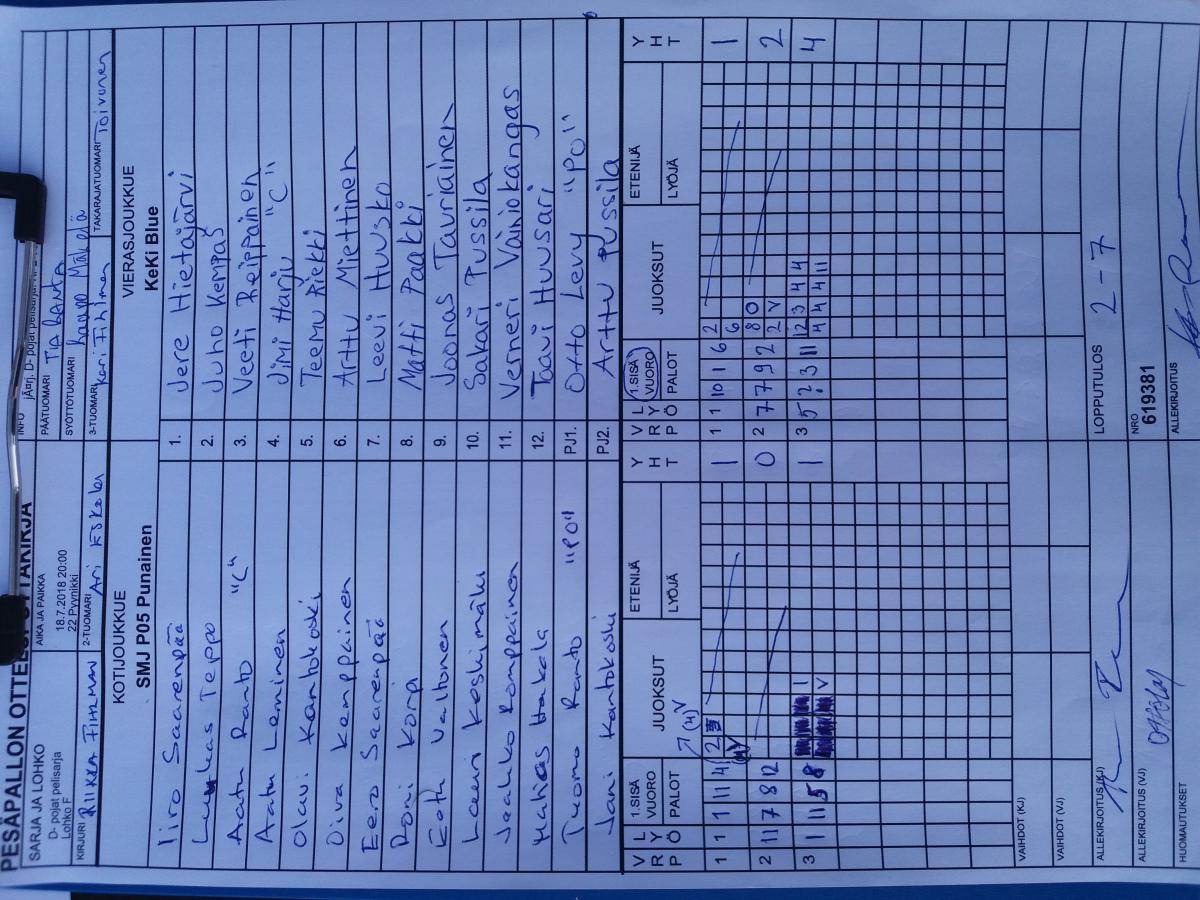 PESÄPALLON OTTELUPÖYTÄKIRJA
SARJA JA LOHKO
D- pojat pelisarja
Lohko F
AIKA JA PAIKKA
18.7.2018 20:00
22 Pyynikki
INFO
PÄÄTUOMARI
SYÖTTÖTUOMARI
KIRJURI
2-TUOMARI Ari Eskola
3-TUOMARI
TAKARAJATUOMARI Toivonen
KOTIJOUKKUE
SMJ P05 Punainen
VIERASJOUKKUE
KeKi Blue
Iiro Saarenpää 1. Jere Hietajärvi
Luukas Teppo 2. Juho Kempas
Aatu Ranto "C" 3. Veeti Reippainen
Aatu Leminen 4. Jimi Harju "C"
Olavi Kantokoski 5. Teemu Rekki
Oiva Kemppainen 6. Arttu Miettinen
Eero Saarenpää 7. Leevi Huusko
Roni Korpi 8. Matti Paakki
Eetu Valtonen 9. Joonas Tauriainen
Lauri Koskimäki 10. Sakari Pussila
Jaakko Romppainen 11. Verneri Vainiokangas
Hakala 12. Taavi Huusari
Tuomo Ranto "PO" PJ1. Otto Levy "PO"
Jani Kantokoski PJ2. Arttu Pussila
V R P L Y Ö 1.SISÄ VUORO PALOT JUOKSUT ETENIJÄ LYÖJÄ Y H T V R P L Y Ö 1.SISÄ VUORO PALOT JUOKSUT ETENIJÄ LYÖJÄ Y H T
1 1 1 11 4 2 1 1 1 10 1 6 2 6 1
2 11 7 8 12 0 2 7 7 9 2 8 0 2 V 2
3 1 11 5 8 1 V 1 3 5 2 3 11 12 3 4 4 4 4 4 11 4
VAIHDOT (KJ)
VAIHDOT (VJ)
LOPPUTULOS 2 - 7
ALLEKIRJOITUS (KJ)
ALLEKIRJOITUS (VJ)
NRO
619381
HUOMAUTUKSET
ALLEKIRJOITUS